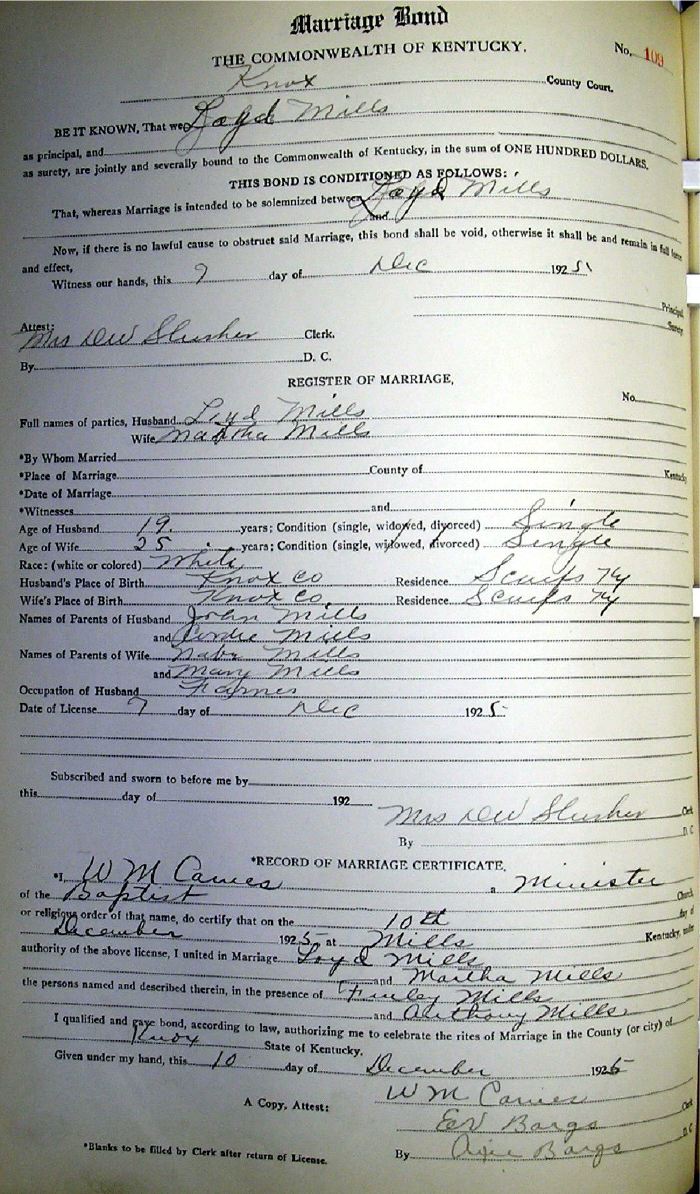 Marriage Bond
THE COMMONWEALTH OF KENTUCKY.
No. 109
Knox County Court.
BE IT KNOWN, That we Loyd Mills
as principal, and
as surety, are jointly and severally bound to the Commonwealth of Kentucky, in the sum of ONE HUNDRED DOLLARS.
THIS BOND IS CONDITIONED AS FOLLOWS:
That, whereas Marriage is intended to be solemnized between Loyd Mills
and
Now, if there is no lawful cause to obstruct said Marriage, this bond shall be void, otherwise it shall be and remain in full force
and effect,
Witness our hands, this 7 day of Dec 1925
Principal
Surety
Attest:
Mrs DW Slusher Clerk.
By D. C.
REGISTER OF MARRIAGE,
No.
Full names of parties, Husband Loyd Mills
Wife Martha Mills
*By Whom Married
*Place of Marriage County of Kentucky
*Date of Marriage
*Witnesses and
Age of Husband 19 years; Condition (single, widowed, divorced) Single
Age of Wife 25 years; Condition (single, widowed, divorced) Single
Race: (white or colored) White
Husband's Place of Birth Knox Co Residence Scalfs Ky
Wife's Place of Birth Knox Co. Residence Scalfs Ky
Names of Parents of Husband John Mills
and Mills
Names of Parents of Wife Mills
and Mary Mills
Occupation of Husband Farmer
Date of License 7 day of Dec 1925
Subscribed and sworn to before me by
this day of 192
Mrs DW Slusher Clerk
By D. C.
*RECORD OF MARRIAGE CERTIFICATE.
*I, W M a Minister
of the Baptist Church
or religious order of that name, do certify that on the 10th day of
December 1925 at Mills Kentucky, under
authority of the above license, I united in Marriage Loyd Mills
and Martha Mills
the persons named and described therein, in the presence of Finley Mills
and Anthony Mills
I qualified and gave bond, according to law, authorizing me to celebrate the rites of Marriage in the County (or city) of
Knox State of Kentucky.
Given under my hand, this 10 day of December 1925
W M
A Copy, Attest: Clerk
By D. C.
*Blanks to be filled by Clerk after return of License.